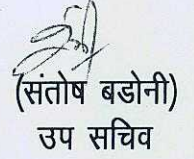 (संतोष बडोनी)
उप सचिव